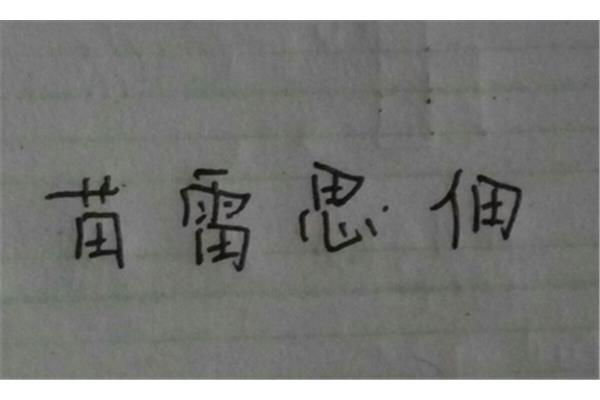 苗雷思佃